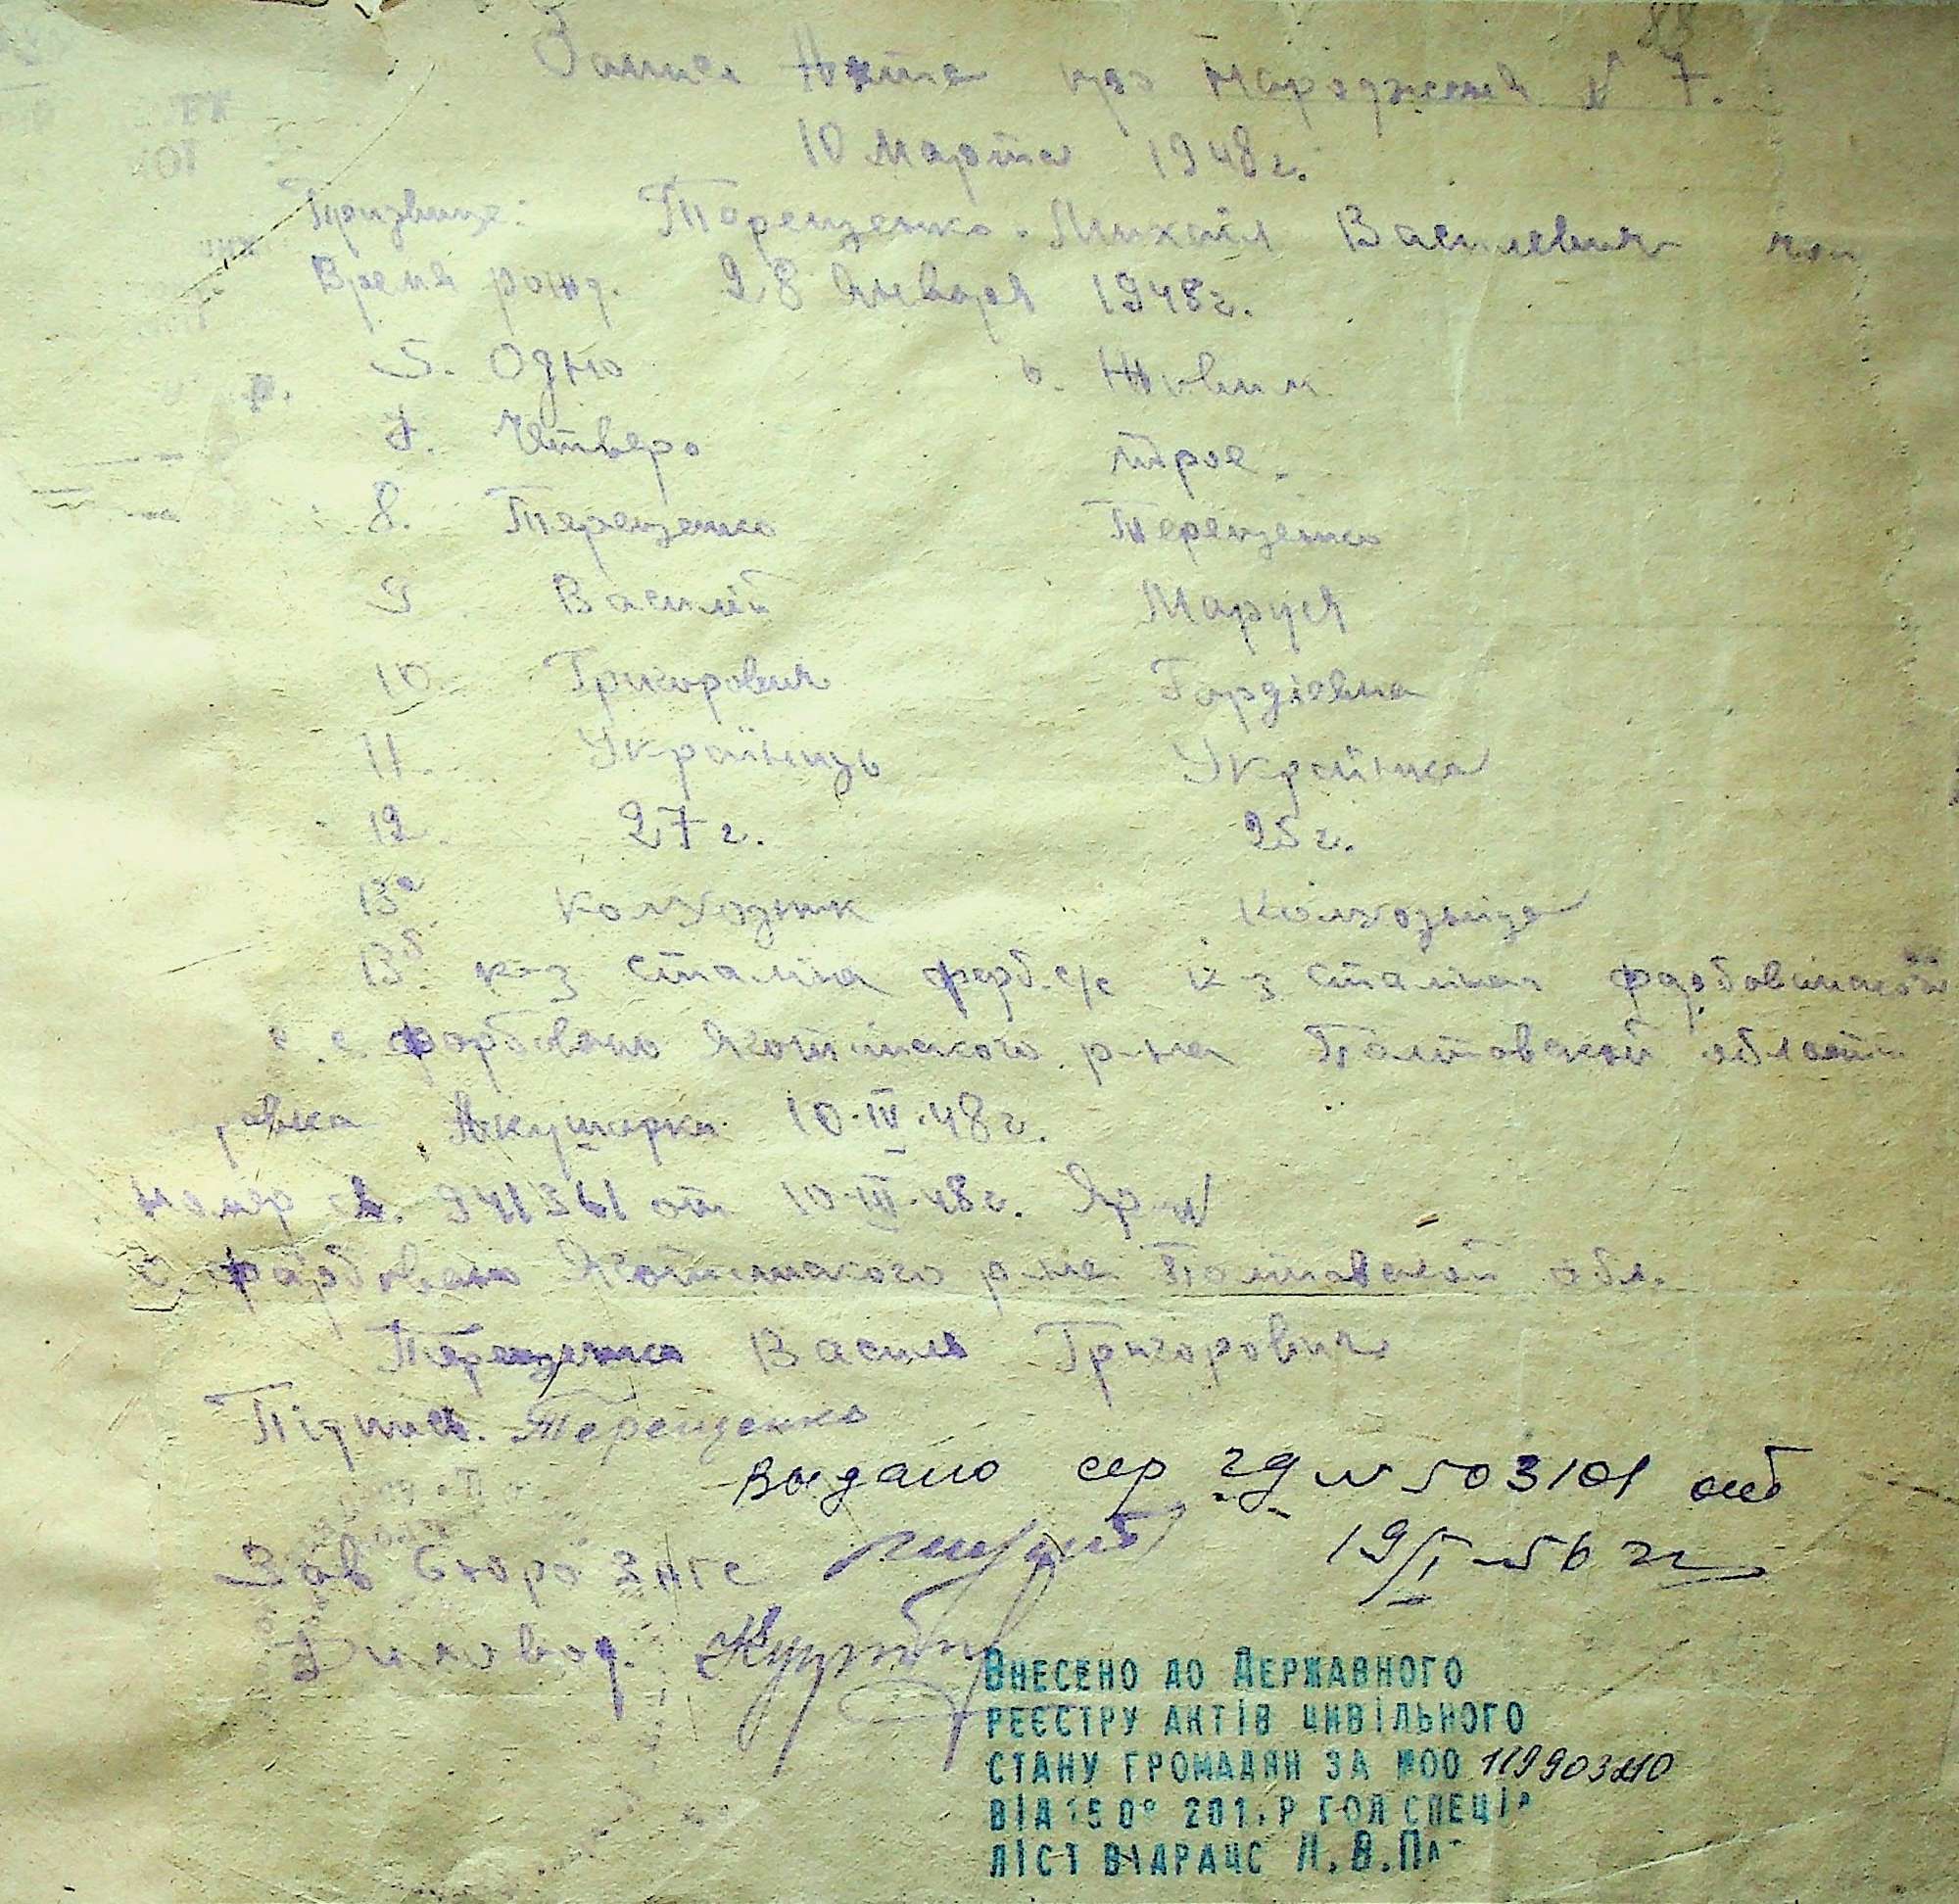 88
Запис Акта про народженя N 7.
10 Марта 1948 г.
Призвище: Терещенко Михайл Васильевич
Время рожд. 28 Января 1948 г.
5. Одно 6. Живим
7. Четверо трое.
8. Терещенко Терещенко
9 Василій Маруся
10. Григорович Гордіовна
11. Українць Українка
12. 27 г. 25 г.
13а Колхозник Колхозніца
13б. к-з Сталіна фарб. с/с к-з Сталіна
с. Фарбовано Яготинского р-на Полтавской області
Акушерка 10.III.48 г.
Номер св. 941361 от 10.III.48 г.
с Фарбовано Яготинского р-на Полтавской обл.
Терещенко Василь Григорович
Підпись. Терещенко
Выдано сер N 503101 от
19/I-56 г
Зав бюро Загс
Диловод.
ВНЕСЕНО ДО ДЕРЖАВНОГО
РЕЄСТРУ АКТІВ ЦИВІЛЬНОГО
СТАНУ ГРОМАДЯН ЗА №00
ВІД ГОЛ СПЕЦІА
ЛІСТ ВІДРАЦС